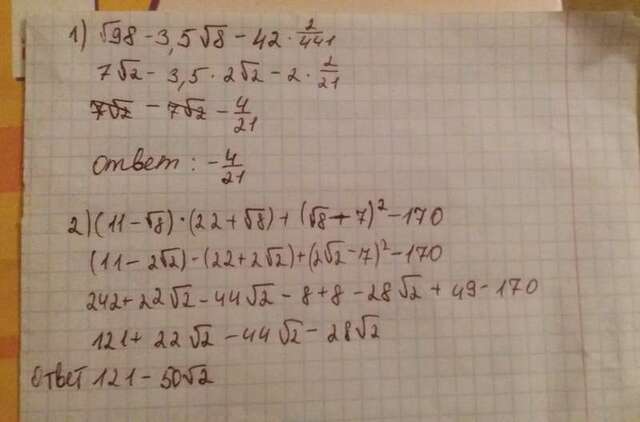 1) √98 - 3,5√8 - 42 · 2/441
7√2 - 3,5 · 2√2 - 2 · 2/21
7√2 - 7√2 - 4/21
ответ: - 4/21
2) (11 - √8) · (22 + √8) + (√8 - 7)² - 170
(11 - 2√2) - (22 + 2√2) + (2√2 - 7)² - 170
242 + 22√2 - 44√2 - 8 + 8 - 28√2 + 49 - 170
121 + 22√2 - 44√2 - 28√2
Ответ 121 - 50√2